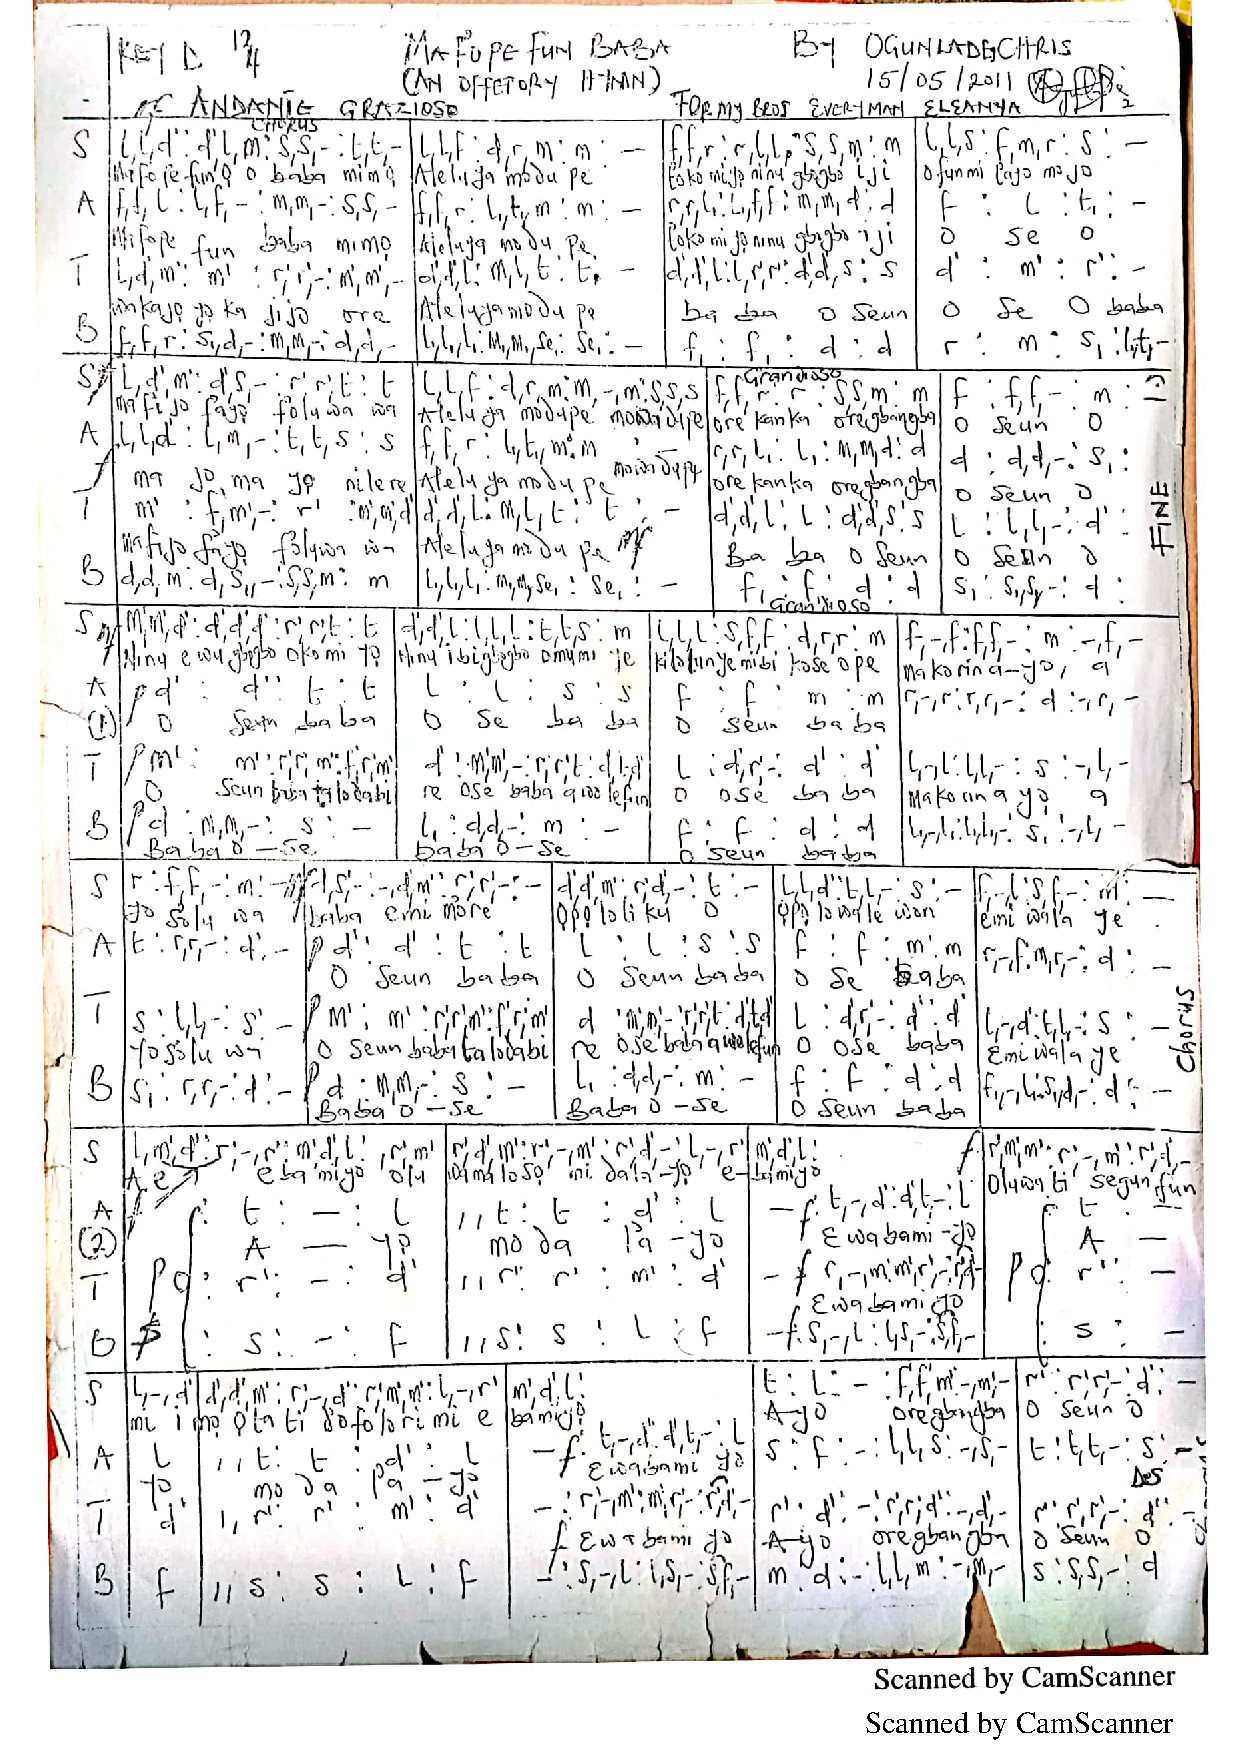 KEY D 12/4 MA FOPE FUN BABA BY OGUNLADE CHRIS
(AN OFFETORY HYMN) 15/05/2011
ANDANTE GRAZIOSO FOR MY BROS EVERYMAN ELEANYA
CHORUS
S l,l,d': d'l,m: s,s,-: t,t,- l,l,f: d,r,m: m: — f,f,r: r,l,l,: s,s,m: m l,l,s: f,m,r: s: —
Mafope fun o baba mimo Aleluya modu pe loko mi jo ninu gbogbo iji o fun mi layo mo jo
A f,f,l: l,f,-: m,m,-: s,s,- f,f,r: l,t,m: m: — r,r,l,: l,f,f: m,m,d: d f: l: t,: -
Mafope fun baba mimo Aleluya modu pe loko mi jo ninu gbogbo iji o se o
T l,d,m': m': r',r',-: m',m',- d',d',l: m,l,t: t, — d',d',l: l,r',r': d',d',s: s d': m': r': -
won kajo yo ka jijo ore Aleluya modu pe ba ba o seun o se o baba
B f,f,r: s,d,-: m,m,-: d,d,- l,l,l,: m,m,se,: se,: — f,: f,: d: d r: m: s,: l,t,-
Grandioso
S l,d',m': d',s,-: r',r',t: t l,l,f: d,r,m: m,-,m: s,s,s f,f,r: r: s,s,m: m f: f,f,-: m:
ma fi jo fayo foluwa wa Aleluya modupe mowadupe ore kanka oregbangba o seun o
A l,l,d': l,m,-: t,t,s: s f,f,r: l,t,m: m r,r,l,: l,: m,m,d: d d: d,d,-: s,:
ma jo ma yo nilere Aleluya modu pe mowadupe ore kanka oregbangba o seun o
T m': f,m',-: r': m',m',d' d',d',l: m,l,t: t: - d',d',l: l: d',d',s: s l: l,l,-: d':
mafijo fayo foluwa wa Aleluya modu pe Ba ba o seun o seun o
B d,d,m: d,s,,-: s,s,m: m l,l,l,: m,m,se,: se,: - f,: f,: d: d s,: s,,s,,-: d:
Grandioso
FINE
S mf m',m',d': d',d',d': r',r',t: t d',d',l: l,l,l: t,t,s: m l,l,l: s,f,f: d,r,r: m f,-,f: f,f,-: m: -,f,-
Ninu ewu gbogbo oko mi yo Ninu ibi gbogbo omumi ye kilolunyemibi kose ope makorin a—yo, a
A p d': d': t: t l: l: s: s f: f: m: m r,-,r: r,r,-: d: -,r,-
(1) o seun baba o se ba ba o seun ba ba
T p m': m': r',r',m': f',r',m' d': m',m',-: r',r',t: d',t,d' l: d',r',-: d': d' l,-,l: l,l,-: s: -,l,-
o seun baba talodabi re ose baba awolefun o ose ba ba makorin a yo a
B p d: m,m,-: s: — l,: d,d,-: m: — f: f: d: d l,,-,l,: l,,l,,-: s,: -,l,,-
Baba o — se baba o — se o seun baba
S r: f,f,-: m: — f l,s,-: -,d,m': r',r',-: — d',d',m': r',d',-: t: — l,l,d': t,l,-: s: — f,-,l: s,f,-: m: —
yo solu wa baba emi more opo loli ku o opo lowale won emi wala ye
A t,: r,r,-: d: - p d': d': t: t l: l: s: s f: f: m: m r,-,f: m,r,-: d: —
o seun baba o seun baba o se baba
T s: l,l,-: s: — p m': m': r',r',m': f',r',m' d': m',m',-: r',r',t: d',t,d' l: d',r',-: d': d' l,-,d': t,l,-: s: —
yosolu wa o seun baba talodabi re ose baba awolefun o ose baba Emi wala ye
B s,: r,r,-: d: - p d: m,m,-: s: - l,: d,d,-: m: - f: f: d: d f,,-,l,: s,,d,-: d: —
Baba o — se Baba o — se o seun baba
Chorus
S l,m',d': r',-,r': m',d',l: ,r',m' r',d',m': r',-,m': r',d',-: l,-,r' m',d',l: f r',m',m': r',-,m': r',d',-
A e ebamiyo olu wamaloso mi dala-yo e-bamiyo Oluwa ti segun fun
A : t: —: l ,,t: t: d': l — f: t,-,d': d',t,-: l : t: —
(2) A — yo mo da pa - yo Ewabami-yo A —
T p : r': —: d' ,,r': r': m': d' - f r',-,m': m',r',-: r',d'- p : r': —
Ewabami yo
B : s: -: f ,,s: s: l: f —f: s,-,l: l,s,-: s,f,- : s: —
S l,-,d' d',d',m': r',-,d': r',m',m': l,-,r' m',d',l: t: l: —: f',f',m': -,m',- r': r',r',-: d': —
mi imo ota ti dofolori mi e bamiyo A-yo oregbangba o seun o
A l ,,t: t: d': l — f: t,-,d': d',t,-: l s: f: -: l,l,s: -,s,- t: t,t,-: s:
yo mo da pa - yo Ewabami yo DS
T d' ,,r': r': m': d' —: r',-,m': m',r',-: r',d',- r': d': -: r',r',d': -,d',- r': r',r',-: d':
f Ewabami yo A-yo oregbangba o seun o
B f ,,s: s: l: f —: s,-,l: l,s,-: s,f,- m: d: -: l,l,m: -,m,- s: s,s,-: d
Scanned by CamScanner
Scanned by CamScanner